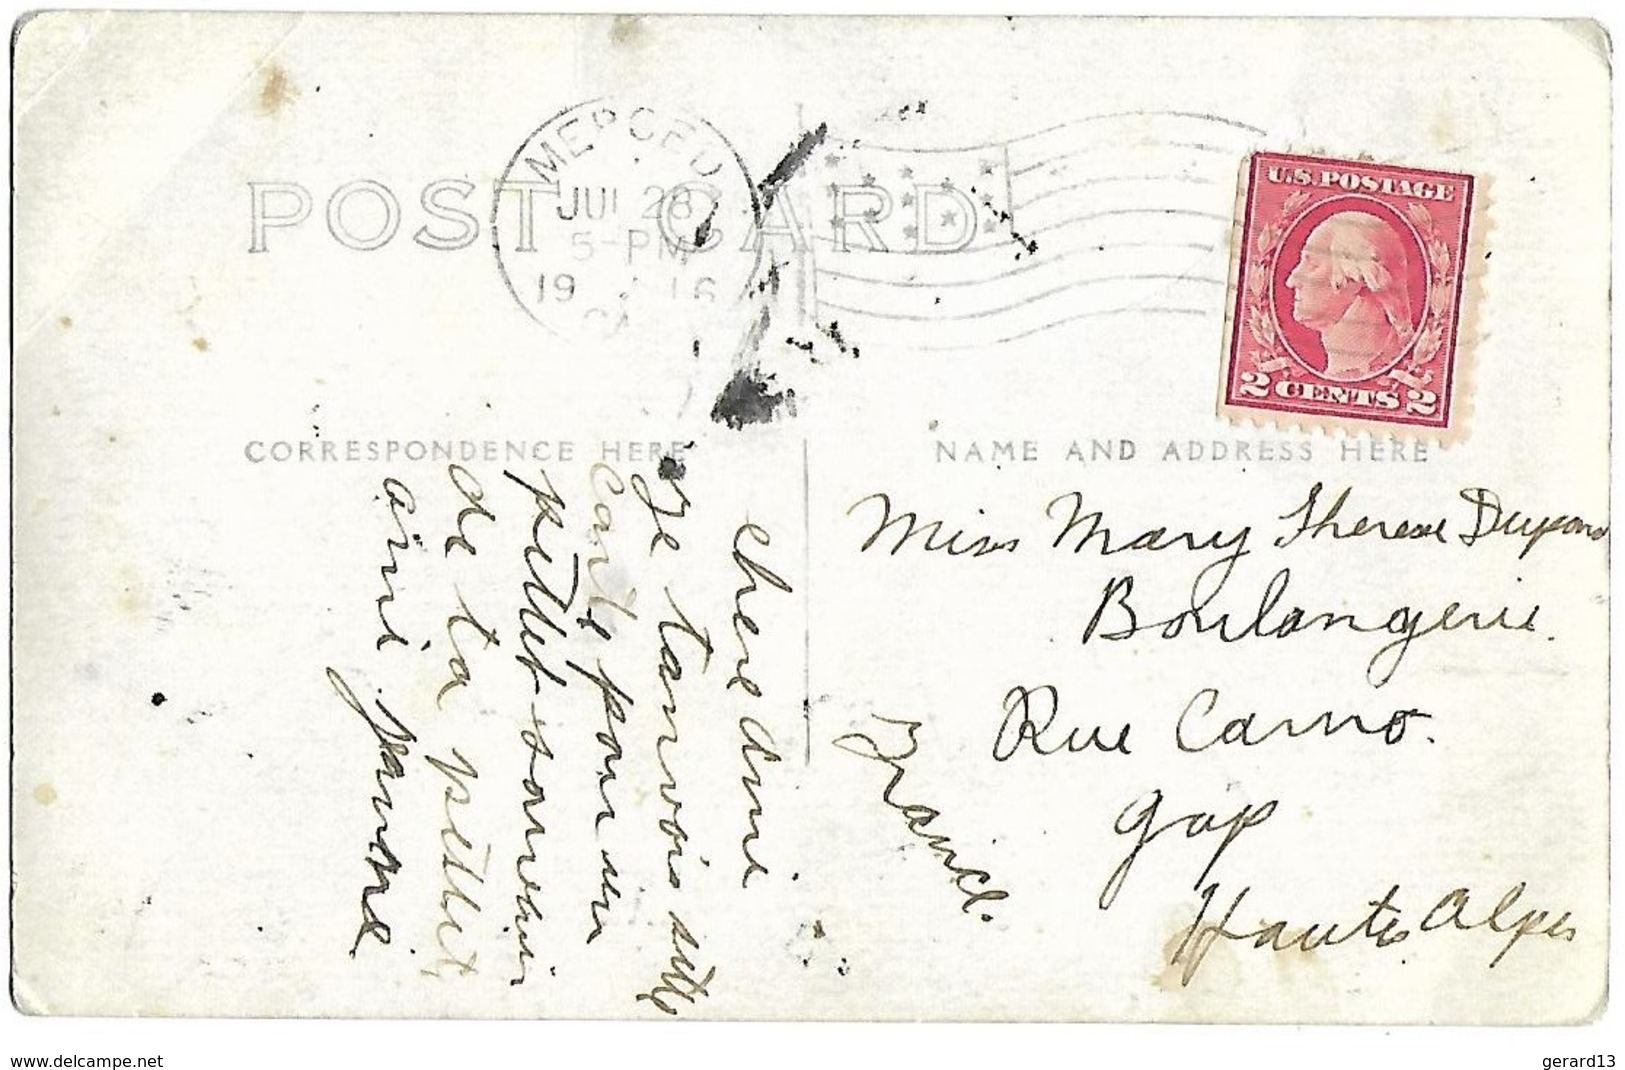 POST CARD
MERCED
JUL 28
5-PM
1916
CA
U.S. POSTAGE
2 CENTS 2
CORRESPONDENCE HERE
NAME AND ADDRESS HERE
chere amie
Je tanvois sette
carte pour un
petteit souvenir
de ta petteit
amie
Miss Mary Therese
Boulangerie.
Rue Carno.
Gap
Hautes Alpes
www.delcampe.net
gerard13